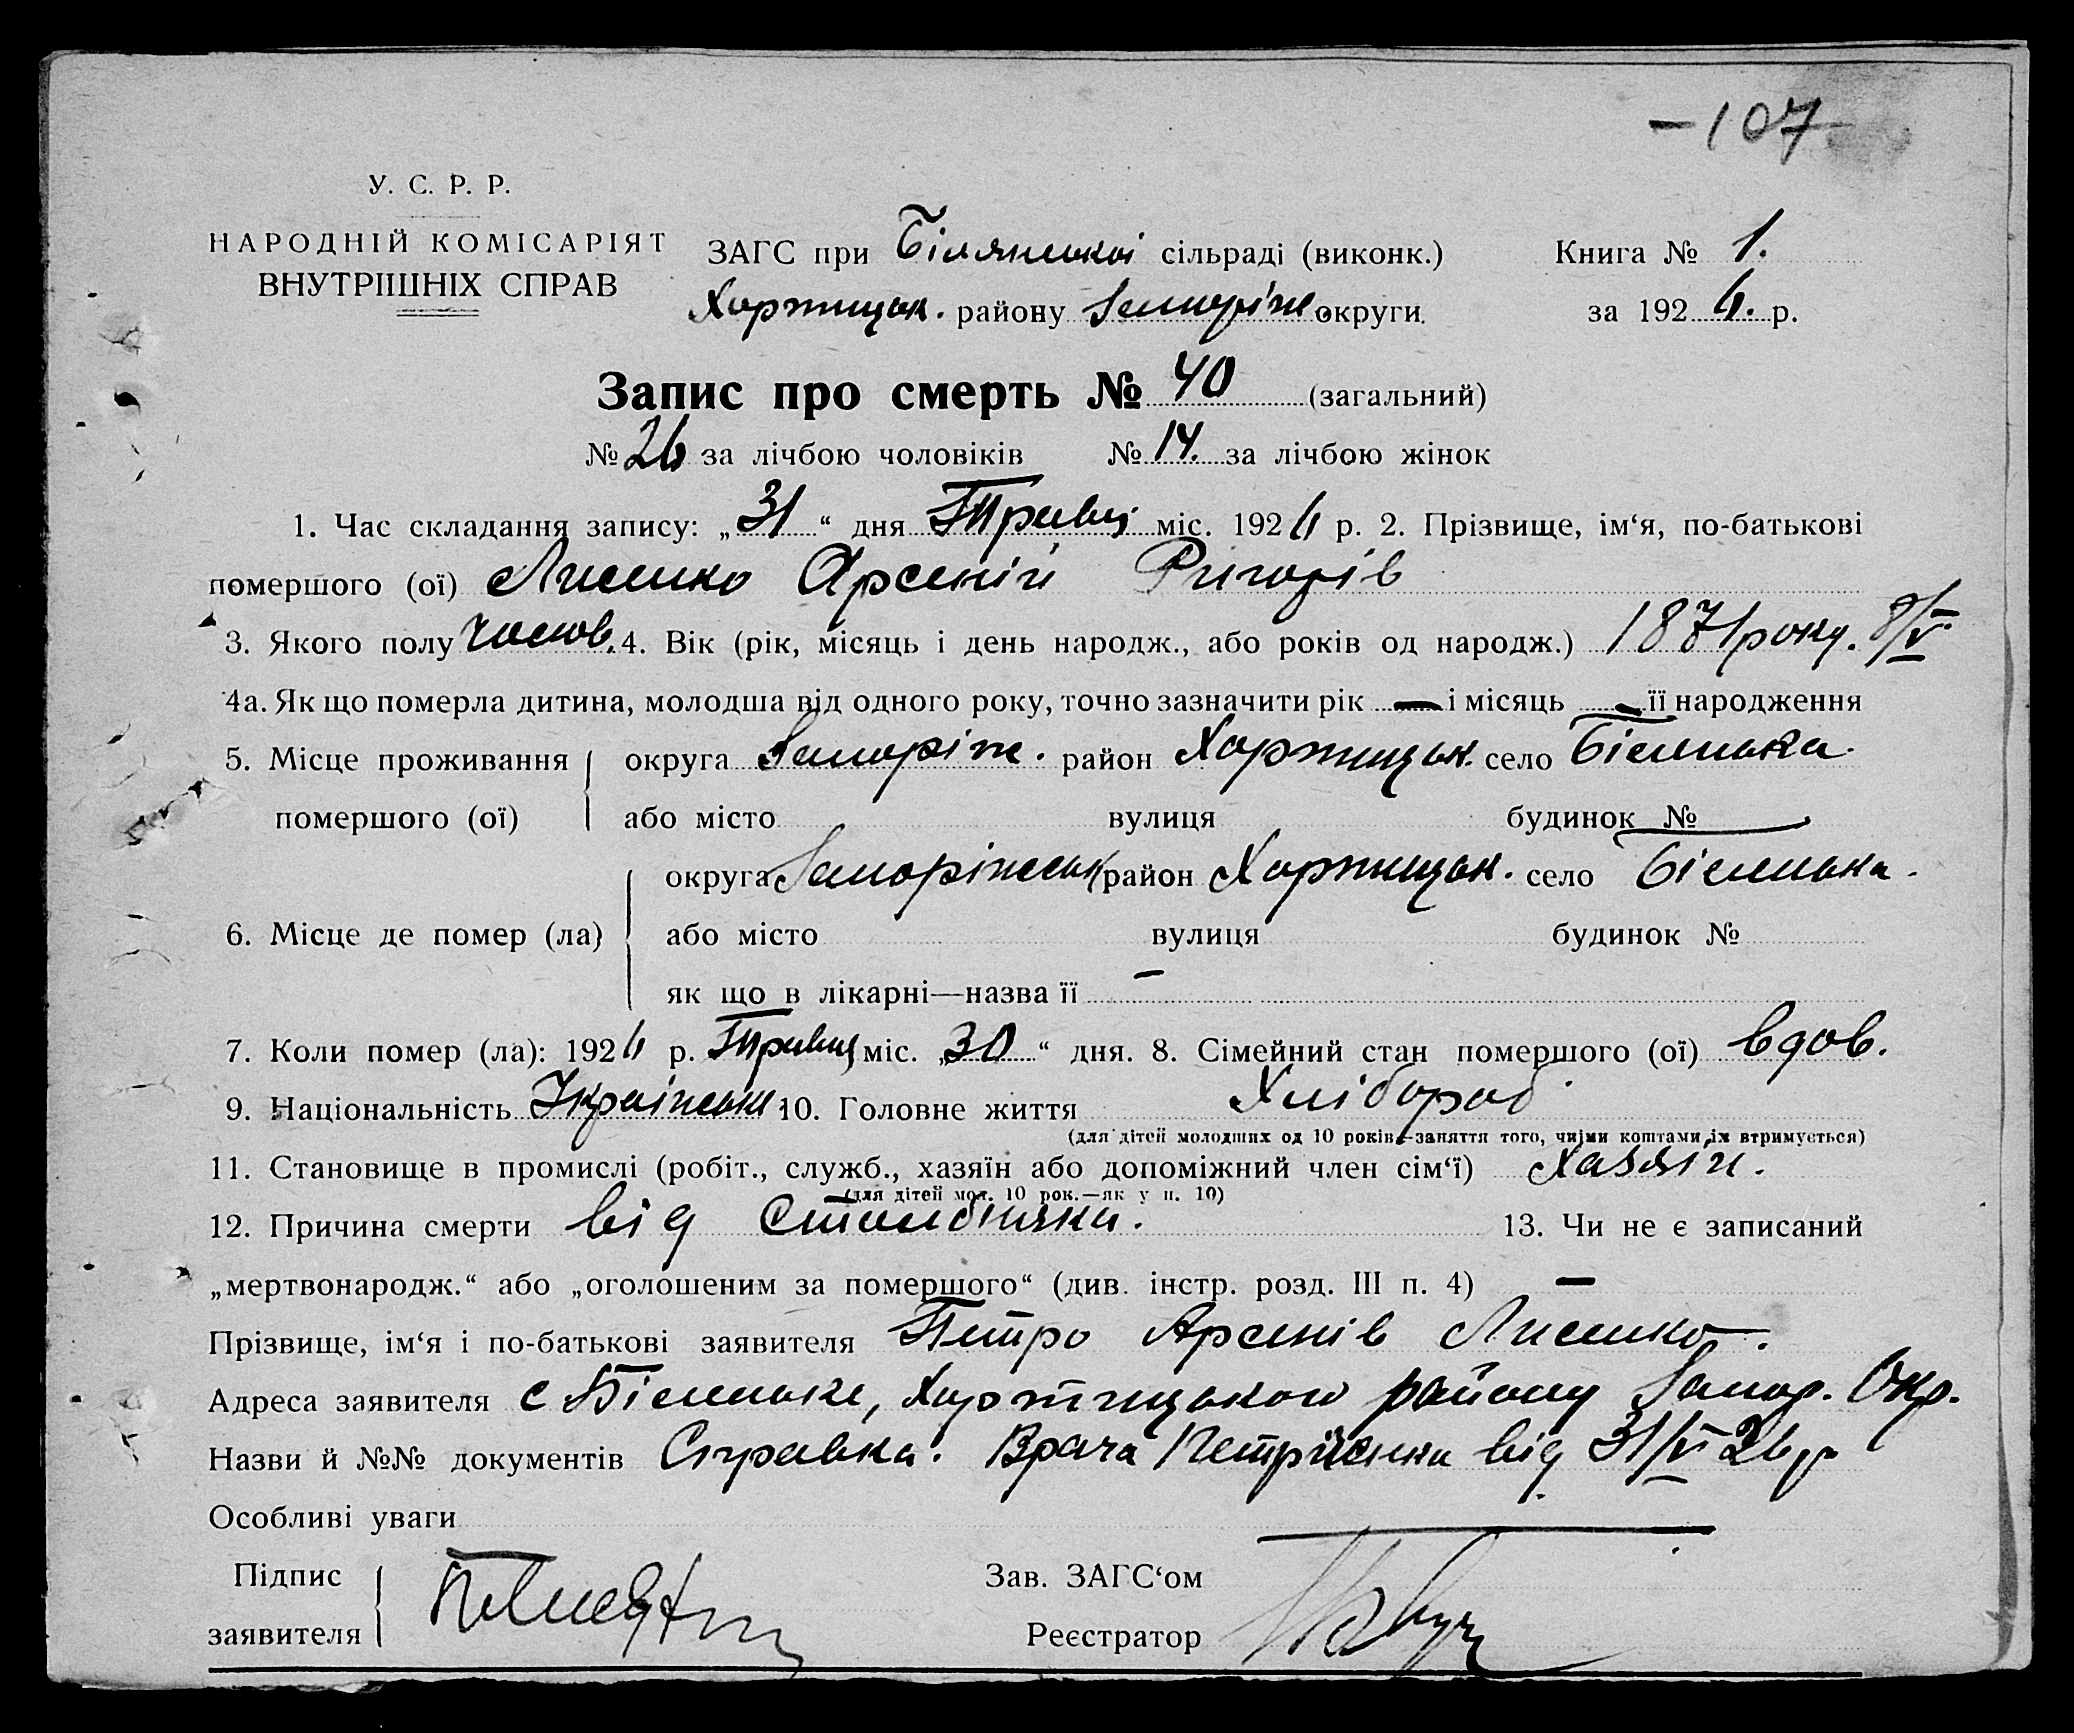 — 107
У. С. Р. Р.
НАРОДНІЙ КОМІСАРІЯТ
ВНУТРІШНІХ СПРАВ
ЗАГС при Білянської сільраді (виконк.)
Хортицьк. району Запоріж округи.
Книга № 1.
за 1926. р.
Запис про смерть № 40 (загальний)
№ 26 за лічбою чоловіків № 14. за лічбою жінок
1. Час складання запису: „31“ дня Травц міс. 1926 р. 2. Прізвище, ім‘я, по-батькові
помершого (ої) Лисенко Арсеній Григорів
3. Якого полу чолов. 4. Вік (рік, місяць і день народж., або років од народж.) 1871 року. 8/V
4а. Як що померла дитина, молодша від одного року, точно зазначити рік — і місяць — її народження
5. Місце проживання округа Запоріж. район Хортицьк. село Біленька
помершого (ої) або місто вулиця будинок №
округа Запоріжськ район Хортицьк. село Біленька.
6. Місце де помер (ла) або місто вулиця будинок №
як що в лікарні—назва її —
7. Коли помер (ла): 1926 р. Травц міс. „30“ дня. 8. Сімейний стан помершого (ої) вдов.
9. Національність 10. Головне життя Хлібороб
(для дітей молодших од 10 років—заняття того, чиїми коштами їх втримується)
11. Становище в промислі (робіт., служб., хазяїн або допоміжний член сім‘ї) Хазяїн.
(для дітей мол. 10 рок.—як у п. 10)
12. Причина смерти від Столбняка. 13. Чи не є записаний
„мертвонародж.“ або „оголошеним за помершого“ (див. інстр. розд. III п. 4) —
Прізвище, ім‘я і по-батькові заявителя Петро Арсенів Лисенко.
Адреса заявителя с Біленьке, Хортицького району Запор. Окр.
Назви й №№ документів Справка. Врача від 31/V 26 р
Особливі уваги
Підпис
заявителя
Зав. ЗАГС‘ом
Реєстратор